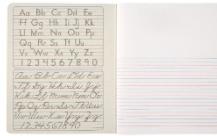 Aa Bb Cc Dd Ee
Ff Gg Hh Ii Jj Kk
Ll Mm Nn Oo Pp
Qq Rr Ss Tt Uu
Vv Ww Xx Yy Zz
1 2 3 4 5 6 7 8 9 10
Aa Bb Cc Dd Ee
Ff Gg Hh Ii Jj
Kk Ll Mm Nn Oo
Pp Qq Rr Ss Tt Uu
Vv Ww Xx Yy Zz
1 2 3 4 5 6 7 8 9 10